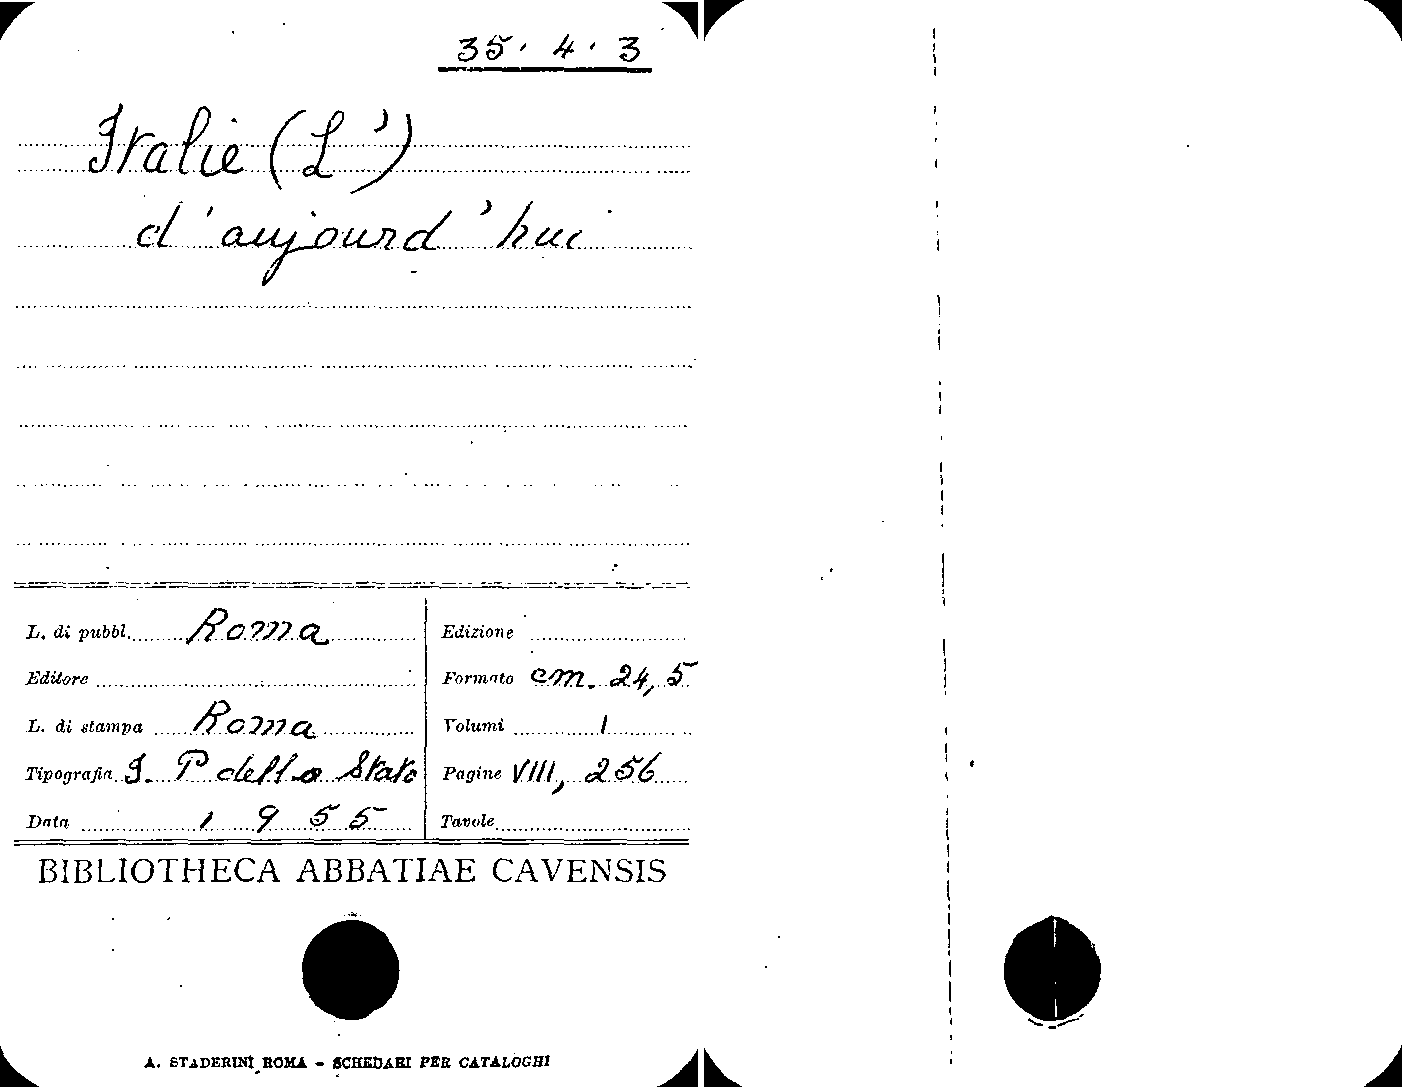 35. 4. 3
Italie (L')
d'aujourd'hui
L. di pubbl. Roma
Editore
L. di stampa Roma
Tipografia I. P dello Stato
Data 1955
Edizione
Formato cm. 24,5
Volumi 1
Pagine VIII, 256
Tavole
BIBLIOTHECA ABBATIAE CAVENSIS
A. STADERINI ROMA - SCHEDARI PER CATALOGHI